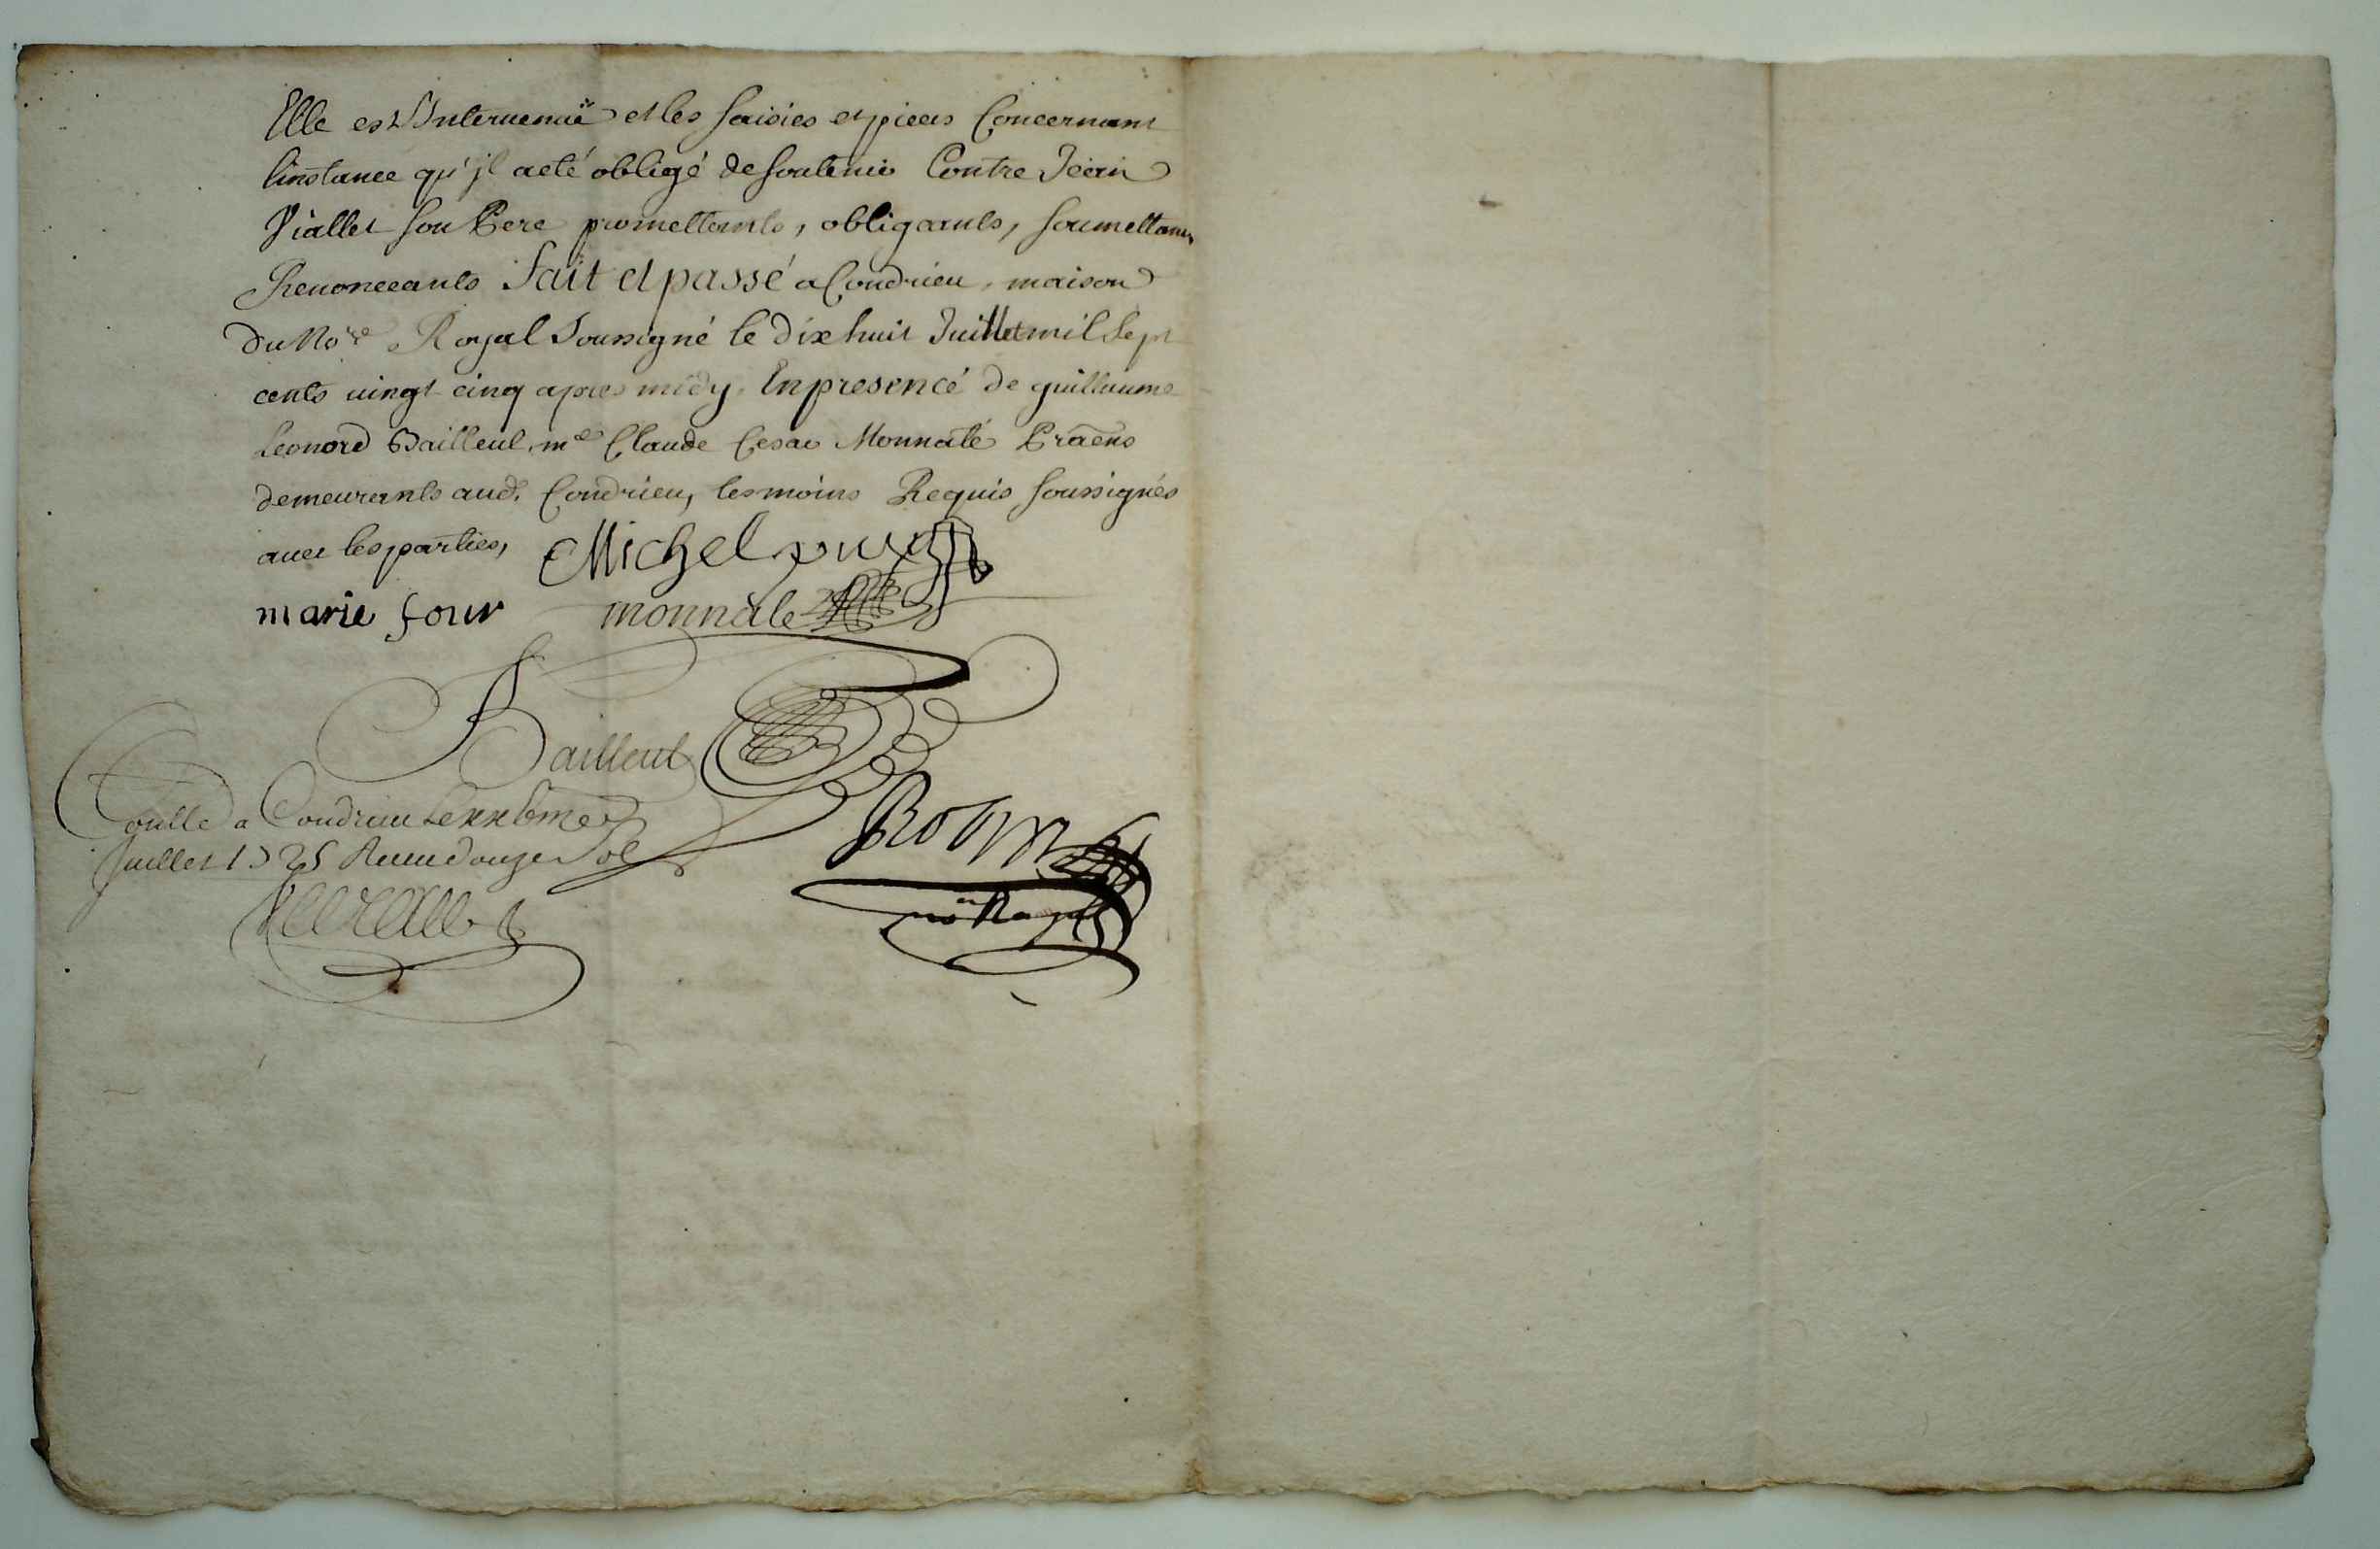 Elle est Intervenuë et les saisies et pieces Concernant
linstance qu'jl aeté obligé de soutenir Contre Jean
Viallet son Pere promettants, obligeants, soumettants
Renonceants Fait et passé a Condrieu, maison
du No.re Royal soussigné le dix huit Juillet mil sept
cents vingt cinq apres midy, En presencé de guillaume
Leonord Bailleul, m.e Claude Cesar Monnate
demeurants aud. Condrieu, tesmoins Requis soussignés
avec les parties,
Michel
marie four
monnate
Bailleul
Coullé a Condrieu Le
Juillet 1725 Receu douze sol
no Royal